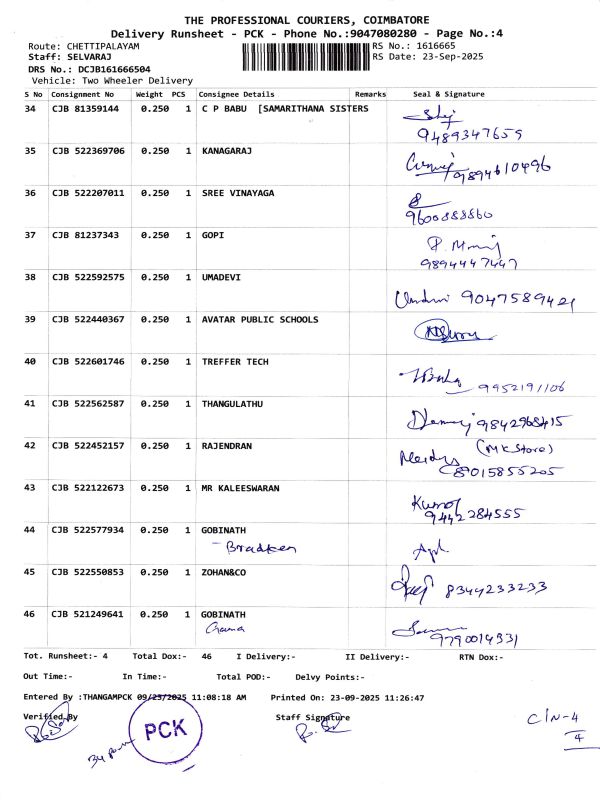 THE PROFESSIONAL COURIERS, COIMBATORE
Delivery Runsheet - PCK - Phone No.:9047080280 - Page No.:4
Route: CHETTIPALAYAM
RS No.: 1616665
Staff: SELVARAJ
RS Date: 23-Sep-2025
DRS No.: DCJB161666504
Vehicle: Two Wheeler Delivery
S No Consignment No Weight PCS Consignee Details Remarks Seal & Signature
34 CJB 81359144 0.250 1 C P BABU [SAMARITHANA SISTERS
9489347659
35 CJB 522369706 0.250 1 KANAGARAJ
9894610496
36 CJB 522207011 0.250 1 SREE VINAYAGA
9600888860
37 CJB 81237343 0.250 1 GOPI
9894447447
38 CJB 522592575 0.250 1 UMADEVI
9047589421
39 CJB 522440367 0.250 1 AVATAR PUBLIC SCHOOLS
40 CJB 522601746 0.250 1 TREFFER TECH
9952191106
41 CJB 522562587 0.250 1 THANGULATHU
9842968415
42 CJB 522452157 0.250 1 RAJENDRAN
(MK Store)
8015855205
43 CJB 522122673 0.250 1 MR KALEESWARAN
9442284555
44 CJB 522577934 0.250 1 GOBINATH
- Bradken
45 CJB 522550853 0.250 1 ZOHAN&CO
8344233233
46 CJB 521249641 0.250 1 GOBINATH
9790014331
Tot. Runsheet:- 4 Total Dox:- 46 I Delivery:- II Delivery:- RTN Dox:-
Out Time:- In Time:- Total POD:- Delvy Points:-
Entered By :THANGAMPCK 09/23/2025 11:08:18 AM Printed On: 23-09-2025 11:26:47
Verified By
Staff Signature
PCK
C/N-4
4